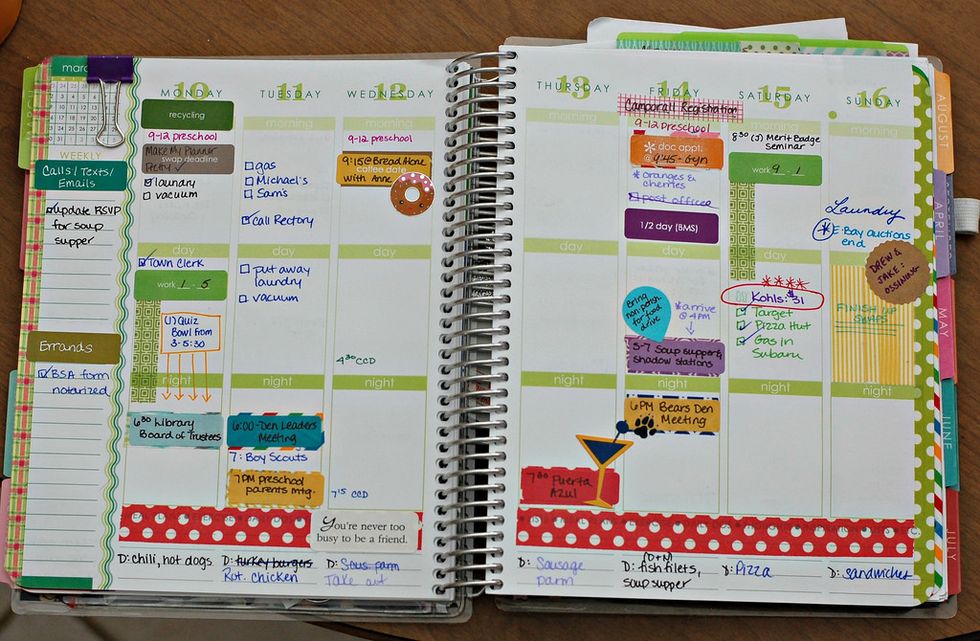 WEEKLY
Calls / Texts/
Emails
update RSVP
for soup
supper
Errands
BSA form
notarized
10
MONDAY
recycling
9-12 preschool
Make My Planner
swap deadline
laundry
vacuum
day
Town Clerk
work 1 - 5
(J) Quiz
Bowl from
3-5:30
night
6:30 Library
Board of Trustees
D: chili, hot dogs
11
TUESDAY
morning
gas
Michael's
Sam's
Call Rectory
day
put away
laundry
vacuum
night
6:00-Den Leaders
Meeting
7: Boy Scouts
7PM preschool
parents mtg.
D: turkey burgers
Rot. Chicken
12
WEDNESDAY
morning
9-12 preschool
9:15@Bread Alone
coffee date
with Anne
day
4:30 CCD
night
7:15 CCD
You're never too
busy to be a friend.
D: Saus. parm
Take out
13
THURSDAY
morning
day
night
7:00 Puerta
Azul
D: Sausage
parm
14
FRIDAY
Camporall Registration
9-12 Preschool
doc appt.
@ 9:45-Gyn
oranges &
cherries
post office
1/2 day (BMS)
day
Bring
non perish.
for food
drive
*arrive
@ 4PM
5-7 Soup supper &
shadow stations
night
6PM Bears Den
Meeting
(D+M)
D: fish filets,
soup supper
15
SATURDAY
morning
8:30 (J) Merit Badge
Seminar
work 9 - 1
day
Kohls: $31
Target
Pizza Hut
Gas in
Subaru
night
D: Pizza
16
SUNDAY
morning
Laundry
E-Bay auctions
end
DREW &
JAKE:
OSSINING
FINISH UP
SWAPS
night
D: sandwiches
AUGUST
APRIL
MAY
JUNE
JULY